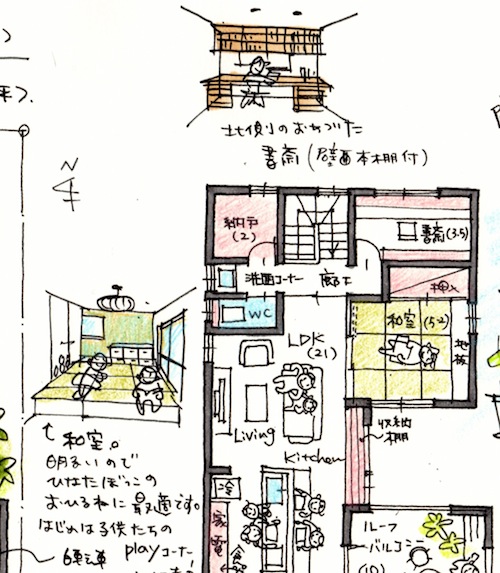 北側のおちついた
書斎(壁面本棚付)
N
納戸
(2)
書斎(3.5)
洗面コーナー
廊下
押入
WC
和室(5.2)
地板
LDK
(21)
Living
Kitchen
収納
棚
冷
家電
和室。
明るいので
ひなたぼっこの
おひるねに最適です。
はじめは子供たちの
playコーナー
ルーフ
バルコニー
(10)